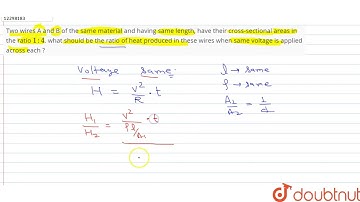 12298183
Two wires A and B of the same material and having same length, have their cross-sectional areas in
the ratio 1 : 4. what should be the ratio of heat produced in these wires when same voltage is applied
across each ?
Voltage same: l → same
H = V²/R · t ρ → same
A₁/A₂ = 1/4
H₁/H₂ = V²/(ρl/A₁) · t
doubtnut